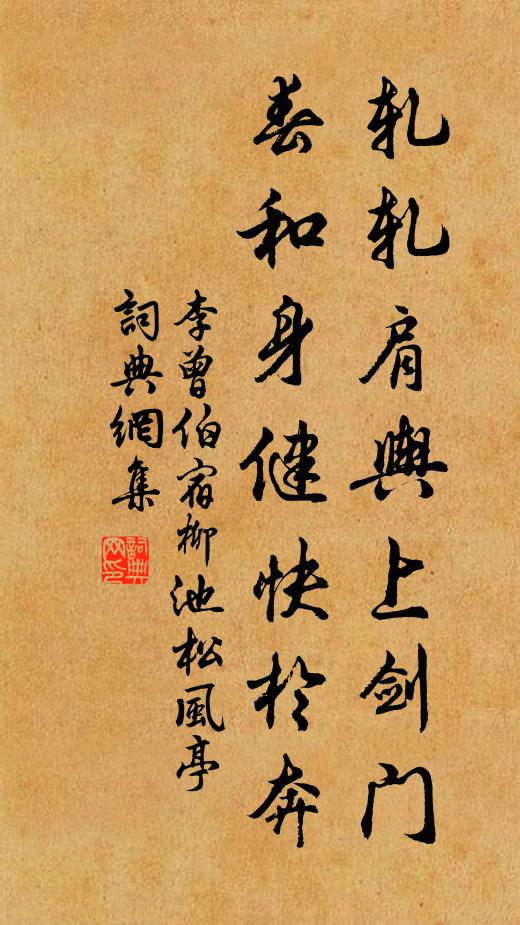 轧轧肩舆上剑门
春和身健快於奔
李曾伯宿柳池松風亭
詞典網集
詞典网印